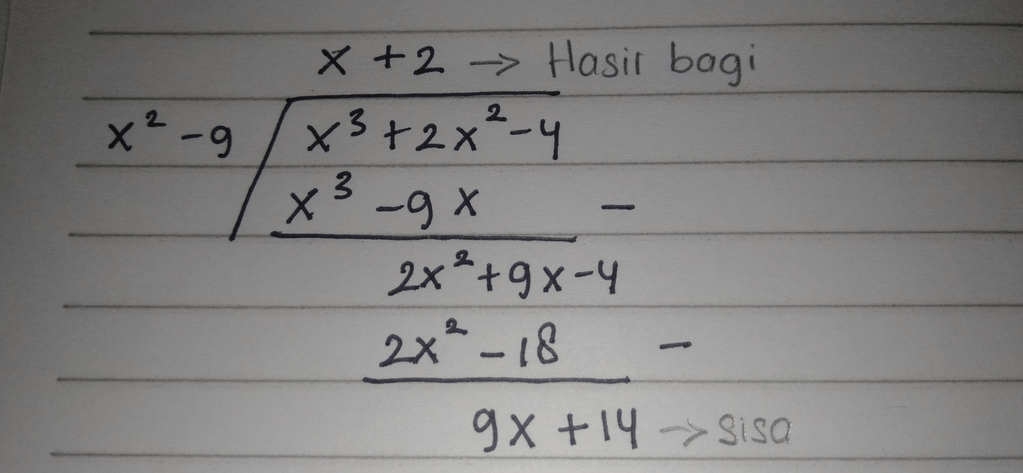 x + 2 → Hasil bagi
x² - 9 / x³ + 2x² - 4
x³ - 9x -
2x² + 9x - 4
2x² - 18 -
9x + 14 → Sisa